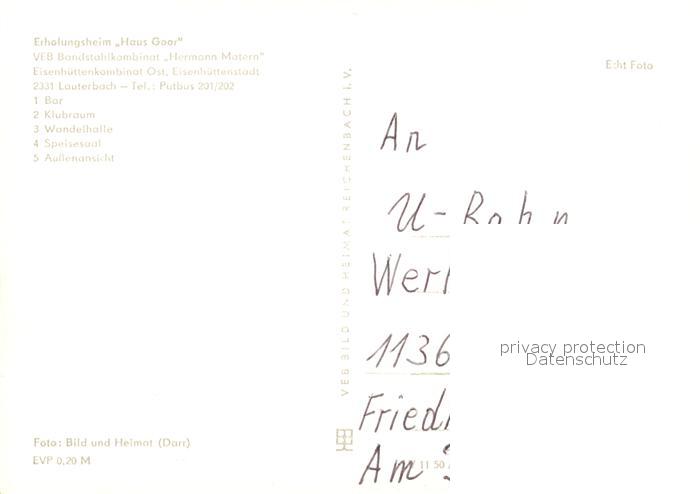 Erholungsheim „Haus Goor"
VEB Bandstahlkombinat „Hermann Matern"
Eisenhüttenkombinat Ost, Eisenhüttenstadt
2331 Lauterbach – Tel.: Putbus 201/202
1 Bar
2 Klubraum
3 Wandelhalle
4 Speisesaal
5 Außenansicht
Foto: Bild und Heimat (Darr)
EVP 0,20 M
VEB BILD UND HEIMAT REICHENBACH I. V.
Echt Foto
An
U-
1136
Am
11 50
privacy protection
Datenschutz